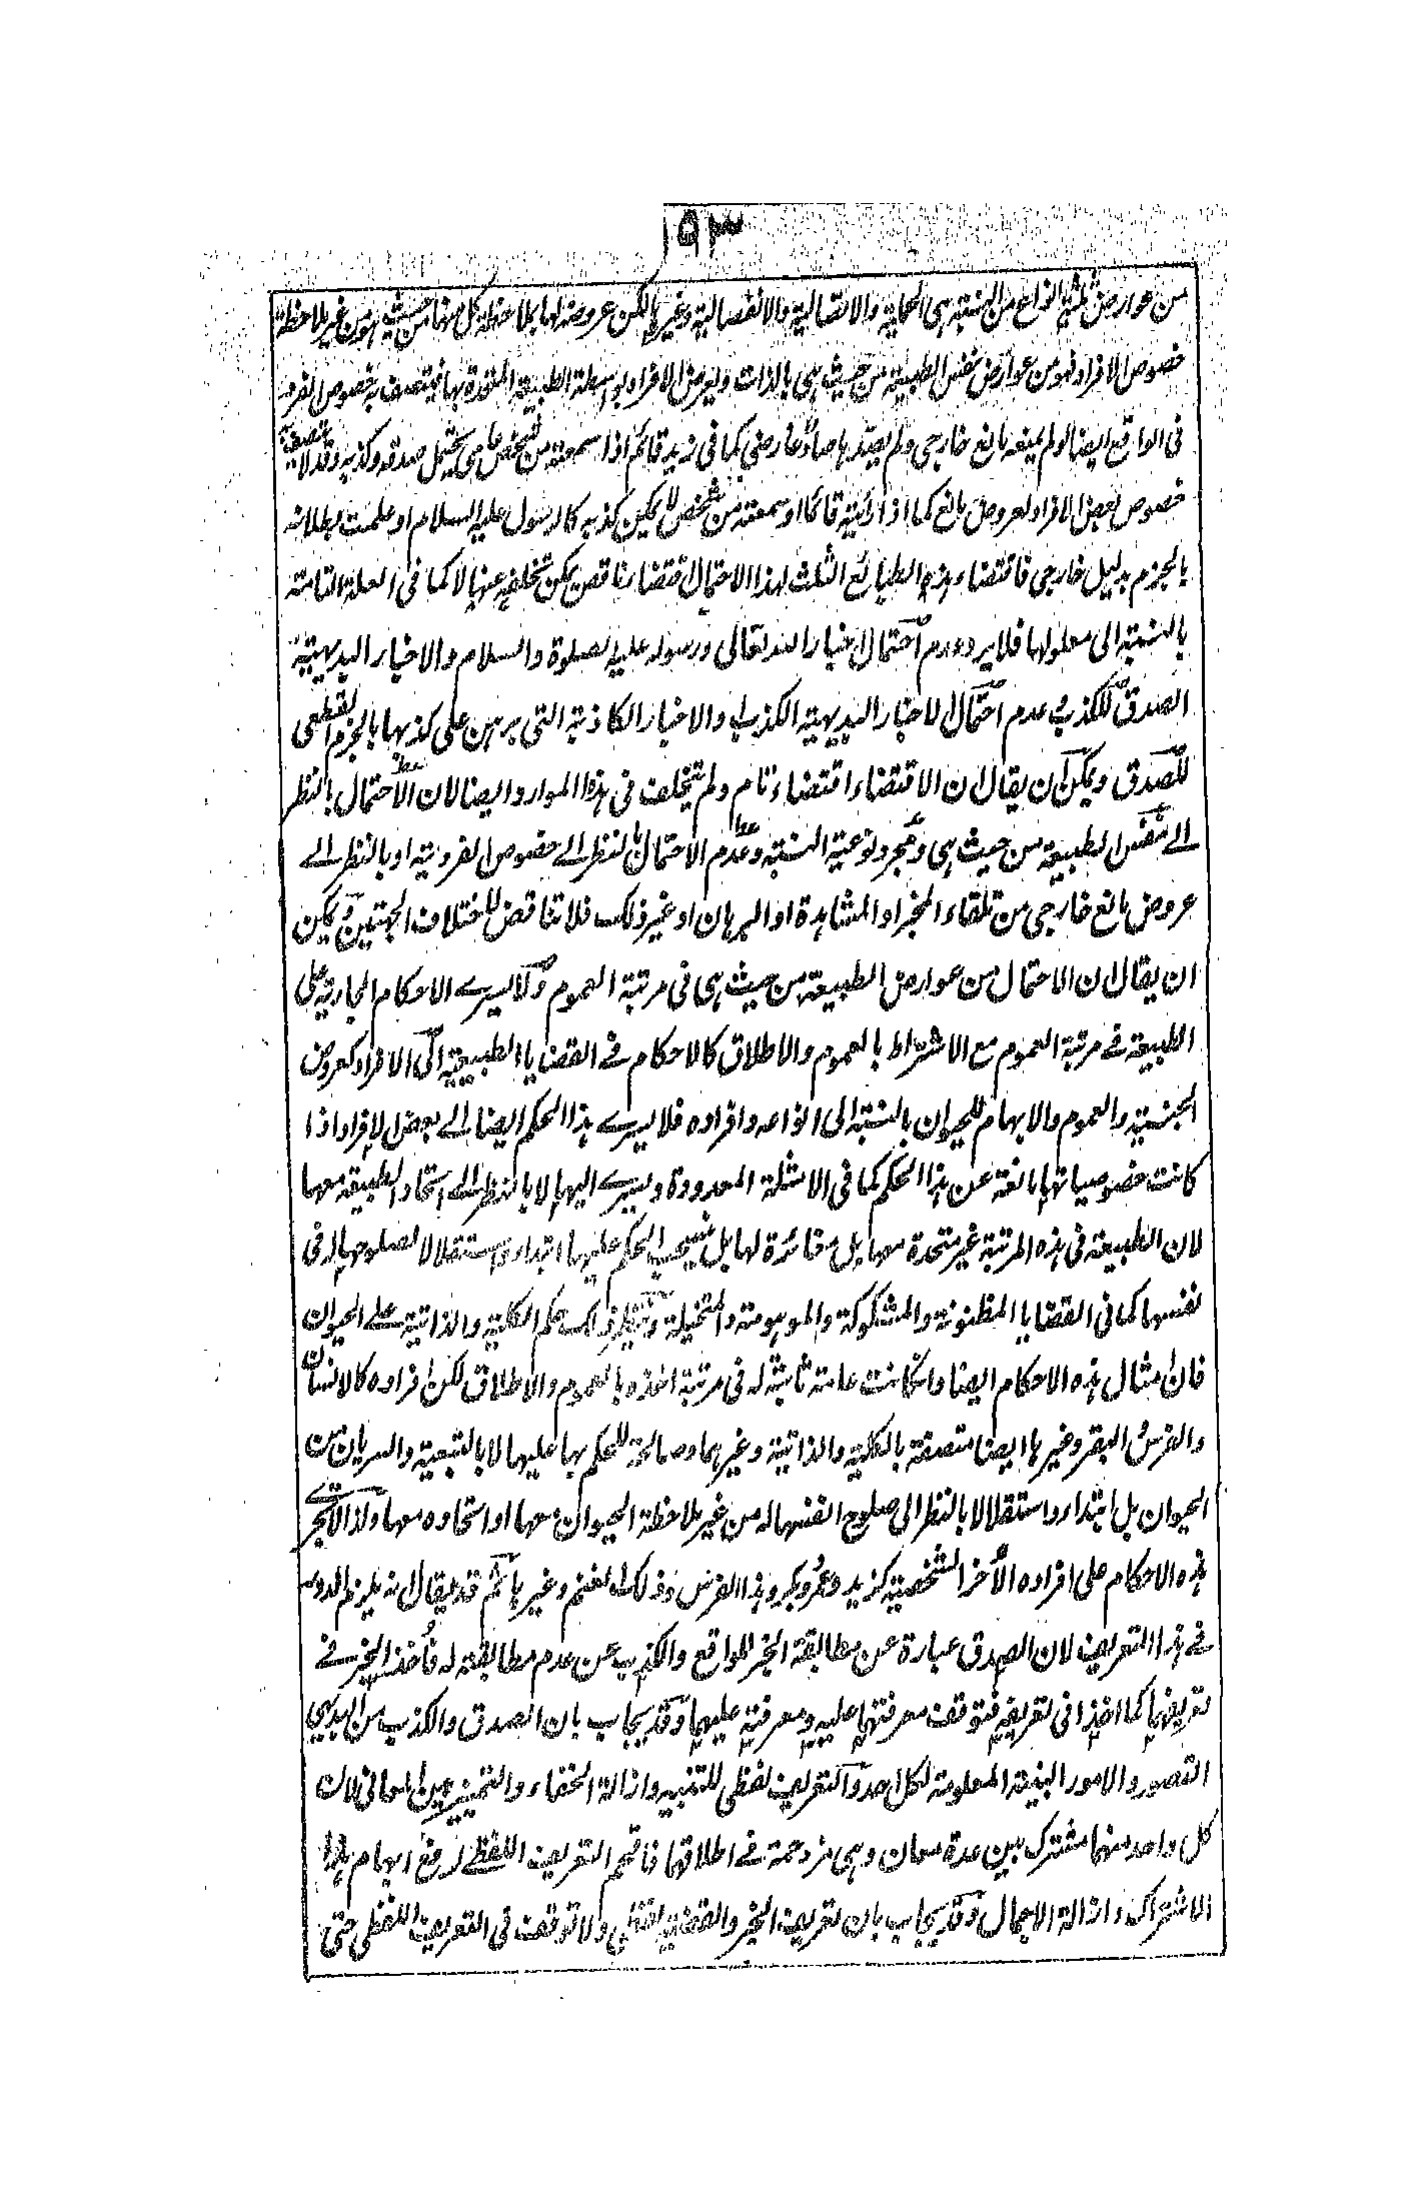 ١٥٣
من عوارض ثلثة انواع من النسبة هى الحملية والاتصالية والانفصالية وغيرها لكن عروضه لها بملاحظة كل منها من حيث هو من غير ملاحظة
خصوص الافراد فهو من عوارض نفس الطبيعة من حيث هى بالذات ويعرض الافراد بواسطة الطبيعة المتحدة بها فيتصف به خصوص الفرد
فى الواقع ايضا لو لم يمنعه مانع خارجى ولم يصدها صاد عارضى كما فى زيد قائم اذا سمعته من شخص عامى يحتمل صدقه وكذبه وقد لا يتصف به
خصوص بعض الافراد لعروض مانع كما اذا رأيته قائما او سمعته من شخص لا يمكن كذبه كالرسول عليه السلام او علمت بطلانه
بالجزم بدليل خارجى فاقتضاء هذه الطبائع الثلث لهذا الاحتمال اقتضاء ناقص يمكن تخلفه عنها لا كما فى العلة التامة
بالنسبة الى معلولها فلا يرد عدم احتمال اخبار الله تعالى ورسوله عليه الصلوة والسلام والاخبار البديهية
الصدق للكذب وعدم احتمال الاخبار البديهية الكذب والاخبار الكاذبة التى برهن على كذبها بالجزم القطعى
للصدق ويمكن ان يقال ان الاقتضاء اقتضاء تام ولم يتخلف فى هذه الموارد ايضا لان الاحتمال بالنظر
الى نفس الطبيعة من حيث هى ومجرد نوعية النسبة وعدم الاحتمال بالنظر الى خصوص الفردية او بالنظر الى
عروض مانع خارجى من تلقاء المخبر او المشاهدة او البرهان او غير ذلك فلا تناقض لاختلاف الجهتين ويمكن
ان يقال ان الاحتمال من عوارض الطبيعة من حيث هى فى مرتبة العموم ولا يسرى الاحكام الجارية على
الطبيعة فى مرتبة العموم مع الاشتراط بالعموم والاطلاق كالاحكام فى القضايا الطبيعية الى الافراد كعروض
الجنسية والعموم والابهام للحيوان بالنسبة الى انواعه وافراده فلا يسرى هذا الحكم ايضا الى بعض الافراد اذا
كانت خصوصياتها مانعة عن هذا الحكم كما فى الامثلة المعدودة ويسرى اليها لا بالنظر الى اتحاد الطبيعة معها
لان الطبيعة فى هذه المرتبة غير متحدة معها بل مغائرة لها بل ينسحب الحكم عليها ابتداء واستقلالا لصلوحها له فى
نفسها كما فى القضايا المظنونة والمشكوكة والموهومة والمتخيلة ونظير ذلك حكم الكلية والذاتية على الحيوان
فان امثال هذه الاحكام ايضا وان كانت عامة ثابتة له فى مرتبة اخذه بالعموم والاطلاق لكن افراده كالانسان
والفرس والبقر وغيرها ايضا متصفة بالكلية والذاتية وغيرهما وصالحة للحكم بها عليها لا بالتبعية والسريان من
الحيوان بل ابتداء واستقلالا بالنظر الى صلوح انفسها له من غير ملاحظة الحيوان معها او اتحاده معها ولذا لا تجرى
هذه الاحكام على افراده الأخر الشخصية كزيد وعمرو وبكر وهذا الفرس وذلك الغنم وغيرها ثم قد يقال انه يلزم الدور
فى هذا التعريف لان الصدق عبارة عن مطابقة الخبر للواقع والكذب عن عدم مطابقته له فأخذ الخبر فى
تعريفهما كما اخذا فى تعريفه فتوقف معرفتهما عليه ومعرفته عليهما وقد يجاب بان الصدق والكذب من البديهى
التصور والامور البينة المعلومة لكل احد والتعريف لفظى للتنبيه وازالة الخفاء والتمييز بين المعانى لان
كل واحد منهما مشترك بين عدة معان وهى مزدحمة فى اطلاقهما فاقحم التعريف اللفظى لرفع ابهام هذا
الاشتراك وازالة الاجمال وقد يجاب بان تعريف الخبر والقضية لفظى ولا توقف فى التعريف اللفظى حتى